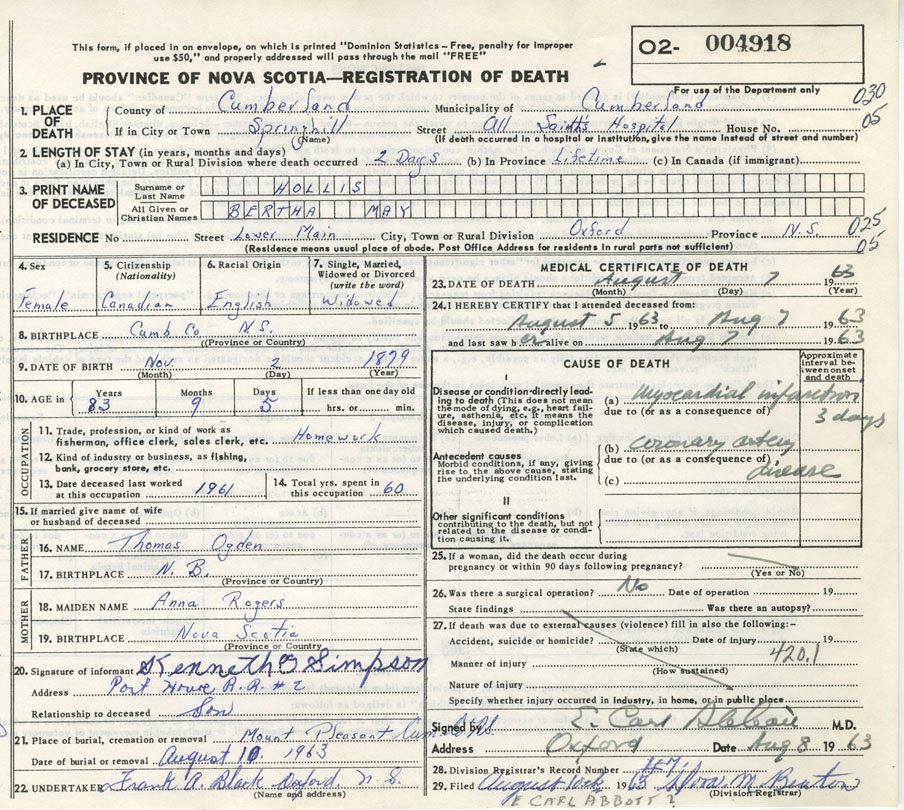 This form, if placed in an envelope, on which is printed "Dominion Statistics – Free, penalty for improper
use $50," and properly addressed will pass through the mail "FREE"
O2- 004918
For use of the Department only
PROVINCE OF NOVA SCOTIA—REGISTRATION OF DEATH
030
05
1. PLACE OF DEATH County of Cumberland Municipality of Cumberland
If in City or Town Springhill Street All Saints Hospital House No.
(Name) (If death occurred in a hospital or institution, give the name instead of street and number)
2. LENGTH OF STAY (in years, months and days)
(a) In City, Town or Rural Division where death occurred 2 Days (b) In Province Lifetime (c) In Canada (if immigrant)
3. PRINT NAME OF DECEASED Surname or Last Name HOLLIS
All Given or Christian Names BERTHA MAY
RESIDENCE No Street Lower Main City, Town or Rural Division Oxford Province N.S. 025
05
(Residence means usual place of abode. Post Office Address for residents in rural parts not sufficient)
4. Sex Female
5. Citizenship (Nationality) Canadian
6. Racial Origin English
7. Single, Married, Widowed or Divorced (write the word) Widowed
8. BIRTHPLACE Cumb Co N.S.
(Province or Country)
9. DATE OF BIRTH Nov. 2 1879
(Month) (Day) (Year)
10. AGE in Years 83 Months 9 Days 5 If less than one day old hrs. or min.
OCCUPATION
11. Trade, profession, or kind of work as fisherman, office clerk, sales clerk, etc. Homework
12. Kind of industry or business, as fishing, bank, grocery store, etc.
13. Date deceased last worked at this occupation 1961
14. Total yrs. spent in this occupation 60
15. If married give name of wife or husband of deceased
FATHER
16. NAME Thomas Ogden
17. BIRTHPLACE N.B.
(Province or Country)
MOTHER
18. MAIDEN NAME Anna Rogers
19. BIRTHPLACE Nova Scotia
(Province or Country)
20. Signature of informant Kenneth G Simpson
Address Port Howe R.R. #2
Relationship to deceased Son
21. Place of burial, cremation or removal Mount Pleasant Cum. Co N.S.
Date of burial or removal August 10, 1963
22. UNDERTAKER Frank A. Black Oxford, N.S.
(Name and address)
MEDICAL CERTIFICATE OF DEATH
23. DATE OF DEATH August 7 1963
(Month) (Day) (Year)
24. I HEREBY CERTIFY that I attended deceased from:
August 5 1963 to Aug 7 1963
and last saw her alive on Aug 7 1963
CAUSE OF DEATH
Approximate interval between onset and death
I
Disease or condition directly leading to death (This does not mean the mode of dying, e.g., heart failure, asthenia, etc. It means the disease, injury, or complication which caused death.)
(a) Myocardial infarction
due to (or as a consequence of)
3 days
Antecedent causes
Morbid conditions, if any, giving rise to the above cause, stating the underlying condition last.
(b) coronary artery
due to (or as a consequence of)
disease
(c)
II
Other significant conditions
contributing to the death, but not related to the disease or condition causing it.
25. If a woman, did the death occur during
pregnancy or within 90 days following pregnancy?
(Yes or No)
26. Was there a surgical operation? No Date of operation 19
State findings Was there an autopsy?
27. If death was due to external causes (violence) fill in also the following:-
Accident, suicide or homicide? Date of injury 19
(State which) 420.1
Manner of injury
(How sustained)
Nature of injury
Specify whether injury occurred in industry, in home, or in public place
Signed by E. Carl M.D.
Address Oxford Date Aug 8 1963
28. Division Registrar's Record Number #71
29. Filed August 1963
(Division Registrar)
E CARL ABBOTT ?